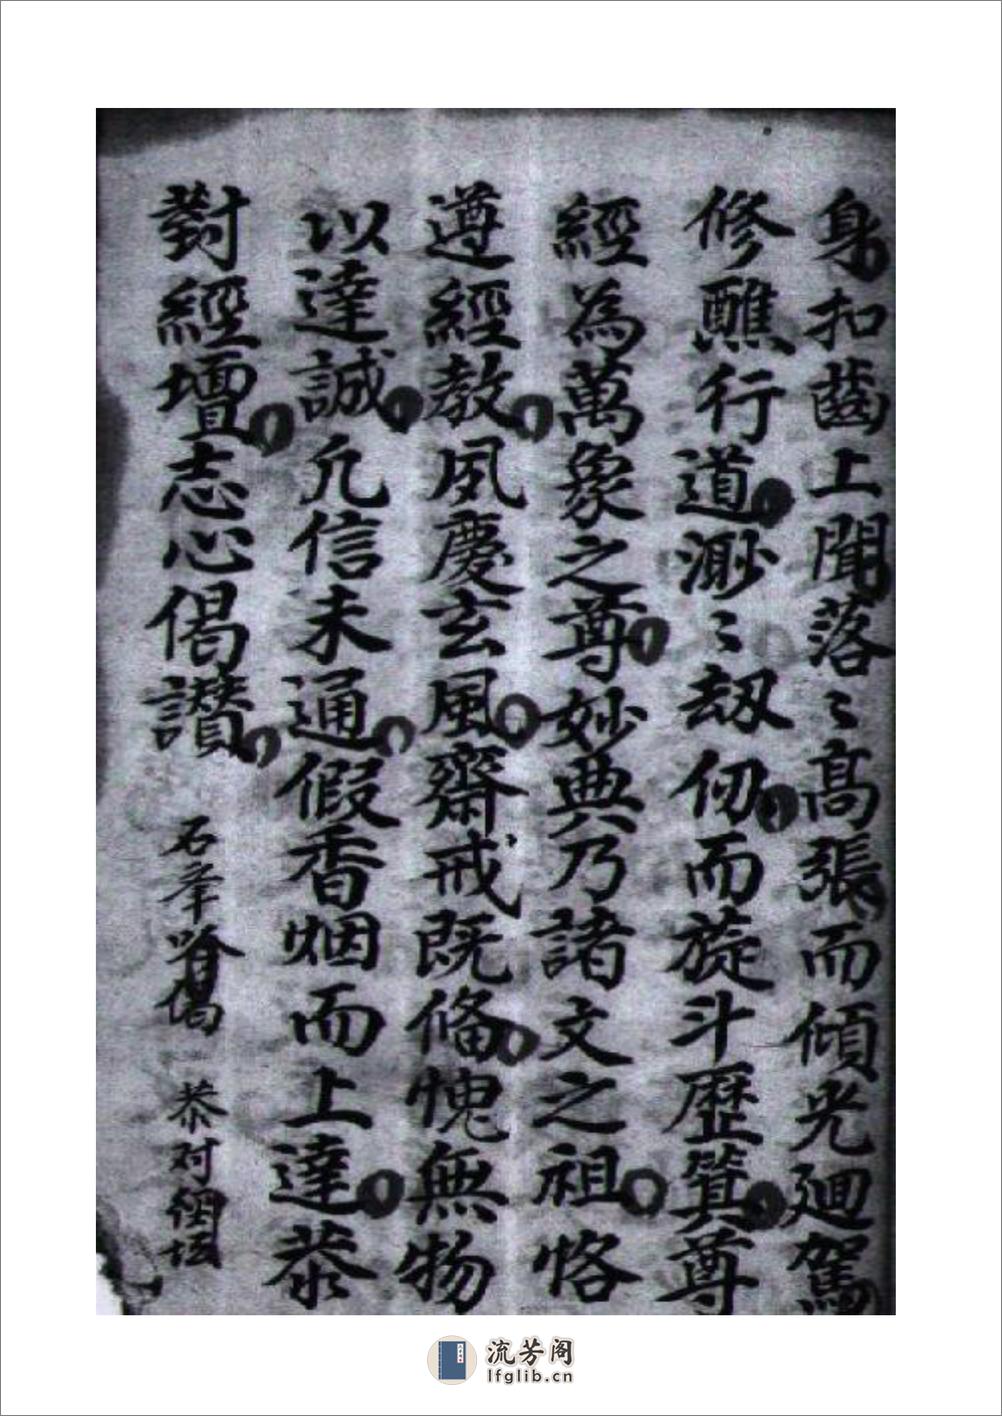 身扣齒上聞落〻高張而傾光廻駕
修醮行道渺〻劫仞而旋斗歷箕尊
經為萬象之尊妙典乃諸文之祖恪
遵經教夙慶玄風齋戒既備愧無物
以達誠凢信未通假香烟而上達恭
對經壇志心偈讚
石峯 恭对經坛
流芳阁
lfglib.cn